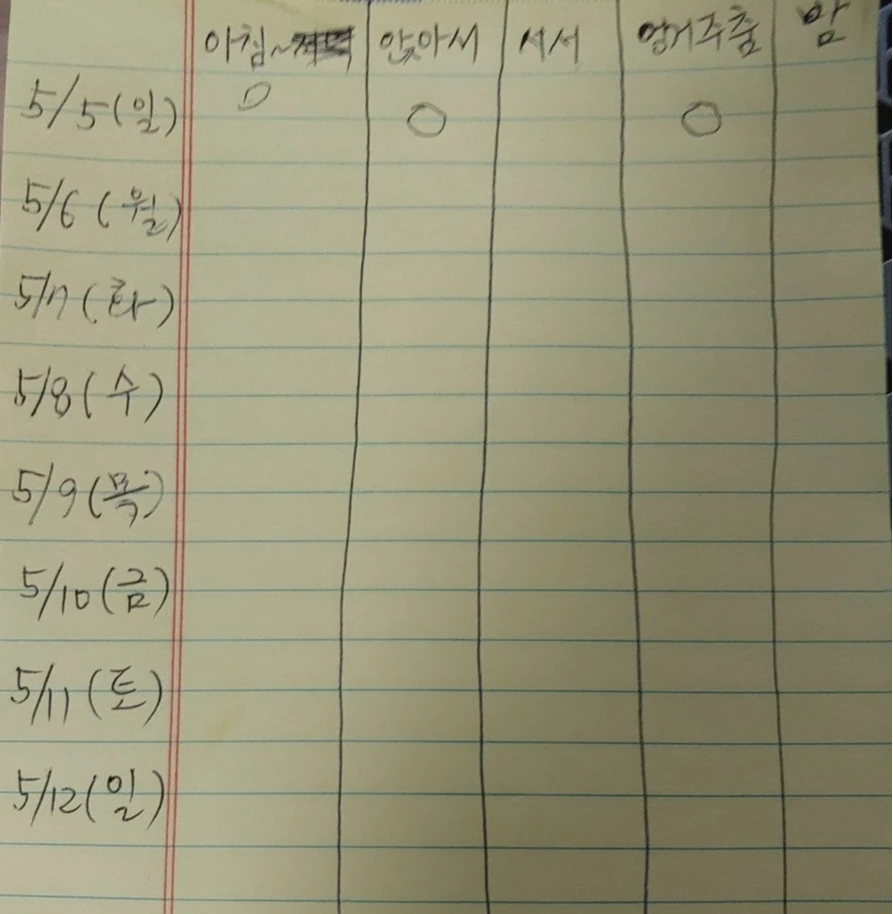 아침~ 앉아서 서서 엉거주춤 암
5/5(일) O O O
5/6(월)
5/7(화)
5/8(수)
5/9(목)
5/10(금)
5/11(토)
5/12(일)